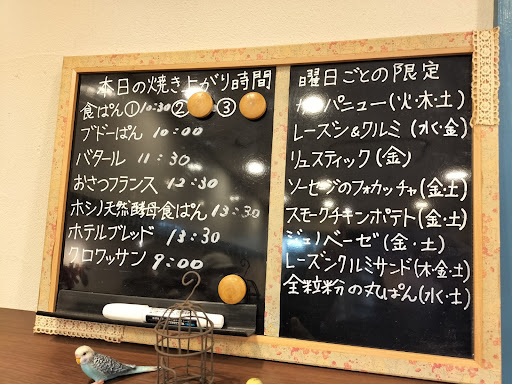 本日の焼き上がり時間
食ぱん①10:30②③
ブドーぱん 10:00
バタール 11:30
おさつフランス 12:30
ホシノ天然酵母食ぱん 13:30
ホテルブレッド 13:30
クロワッサン 9:00
曜日ごとの限定
カンパーニュー(火・木・土)
レーズン&クルミ(水・金)
リュスティック(金)
ソーセージのフォカッチャ(金・土)
スモークチキンポテト(金・土)
ジェノベーゼ(金・土)
レーズンクルミサンド(木・金・土)
全粒粉の丸ぱん(水・土)